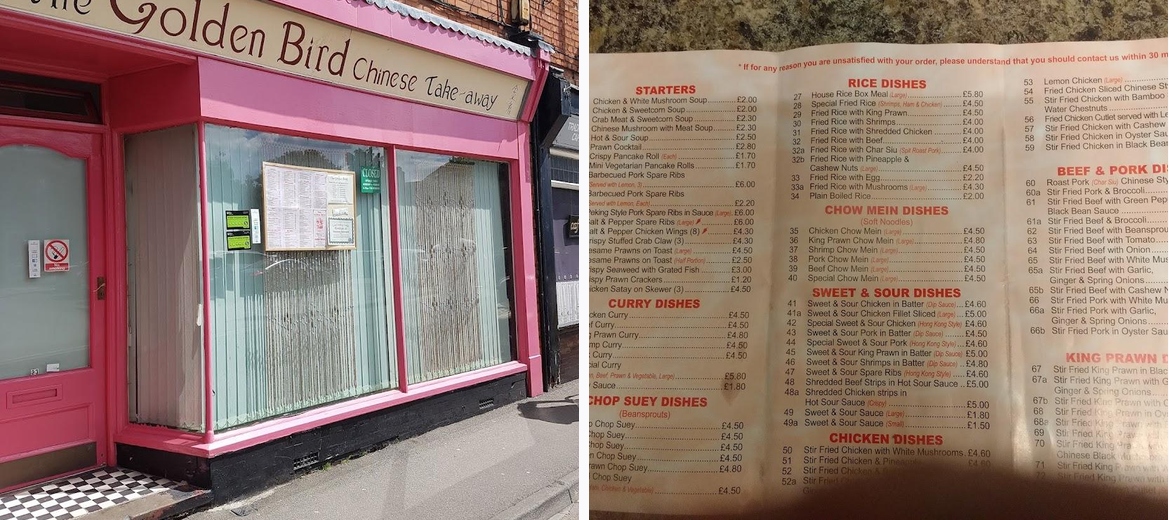 the Golden Bird Chinese Take-away
CLOSED
* If for any reason you are unsatisfied with your order, please understand that you should contact us within 30 m
STARTERS
Chicken & White Mushroom Soup £2.00
Chicken & Sweetcorn Soup £2.00
Crab Meat & Sweetcorn Soup £2.30
Chinese Mushroom with Meat Soup £2.30
Hot & Sour Soup £2.50
Prawn Cocktail £2.80
Crispy Pancake Roll (Each) £1.70
Mini Vegetarian Pancake Rolls £1.70
Barbecued Pork Spare Ribs
(Served with Lemon, 3) £6.00
Barbecued Pork Spare Ribs
(Served with Lemon, Each) £2.20
Peking Style Pork Spare Ribs in Sauce (Large) £6.00
Salt & Pepper Spare Ribs (Large) £6.00
Salt & Pepper Chicken Wings (8) £4.30
Crispy Stuffed Crab Claw (3) £4.30
Sesame Prawns on Toast (Large) £4.50
Sesame Prawns on Toast (Half Portion) £2.50
Crispy Seaweed with Grated Fish £3.00
Crispy Prawn Crackers £1.20
Chicken Satay on Skewer (3) £4.50
CURRY DISHES
cken Curry £4.50
ef Curry £4.50
g Prawn Curry £4.80
mp Curry £4.50
k Curry £4.50
cial Curry
en, Beef, Prawn & Vegetable, Large) £5.80
y Sauce £1.80
CHOP SUEY DISHES
(Beansprouts)
Chop Suey £4.50
Chop Suey £4.50
Chop Suey £4.50
Chop Suey £4.50
rawn Chop Suey £4.80
£4.50
RICE DISHES
27 House Rice Box Meal (Large) £5.80
28 Special Fried Rice (Shrimps, Ham & Chicken) £4.50
29 Fried Rice with King Prawn £4.50
30 Fried Rice with Shrimps £4.00
31 Fried Rice with Shredded Chicken £4.00
32 Fried Rice with Beef £4.00
32a Fried Rice with Char Siu (Soft Roast Pork) £4.00
32b Fried Rice with Pineapple &
Cashew Nuts (Large) £4.50
33 Fried Rice with Egg £2.20
33a Fried Rice with Mushrooms (Large) £4.30
34 Plain Boiled Rice £2.00
CHOW MEIN DISHES
(Soft Noodles)
35 Chicken Chow Mein (Large) £4.50
36 King Prawn Chow Mein (Large) £4.80
37 Shrimp Chow Mein (Large) £4.50
38 Pork Chow Mein (Large) £4.50
39 Beef Chow Mein (Large) £4.50
40 Special Chow Mein (Large) £4.50
SWEET & SOUR DISHES
41 Sweet & Sour Chicken in Batter (Dip Sauce) £4.60
41a Sweet & Sour Chicken Fillet Sliced (Large) £5.00
42 Special Sweet & Sour Chicken (Hong Kong Style) £4.60
43 Sweet & Sour Pork in Batter (Dip Sauce) £4.50
44 Special Sweet & Sour Pork (Hong Kong Style) £4.60
45 Sweet & Sour King Prawn in Batter (Dip Sauce) £5.00
46 Sweet & Sour Shrimps in Batter (Dip Sauce) £4.80
47 Sweet & Sour Spare Ribs (Hong Kong Style) £4.60
48 Shredded Beef Strips in Hot Sour Sauce £5.00
48a Shredded Chicken strips in
Hot Sour Sauce (Crispy) £5.00
49 Sweet & Sour Sauce (Large) £1.80
49a Sweet & Sour Sauce (Small) £1.50
CHICKEN DISHES
50 Stir Fried Chicken with White Mushrooms £4.60
51 Stir Fried Chicken & Pineapple
52 Stir Fried Chicken
52a Stir Fried
53 Lemon Chicken (Large)
54 Fried Chicken Sliced Chinese St
55 Stir Fried Chicken with Bamboo
Water Chestnuts
56 Fried Chicken Cutlet served with Le
57 Stir Fried Chicken with Cashew
58 Stir Fried Chicken in Oyster Sau
59 Stir Fried Chicken in Black Bean
BEEF & PORK DIS
60 Roast Pork (Char Siu) Chinese Sty
60a Stir Fried Pork & Broccoli
61 Stir Fried Beef with Green Pep
Black Bean Sauce
61a Stir Fried Beef & Broccoli
62 Stir Fried Beef with Beansprou
63 Stir Fried Beef with Tomato
64 Stir Fried Beef with Onion
65 Stir Fried Beef with White Mus
65a Stir Fried Beef with Garlic,
Ginger & Spring Onions
65b Stir Fried Beef with Cashew N
66 Stir Fried Pork with White Mu
66a Stir Fried Pork with Garlic,
Ginger & Spring Onions
66b Stir Fried Pork in Oyster Sau
KING PRAWN D
67 Stir Fried King Prawn in Blac
67a Stir Fried King Prawn with G
Ginger & Spring Onions
67b Stir Fried King Prawn with
68 Stir Fried King Prawn
69 Stir Fried King Prawn
70 Stir Fried King Prawn
Chinese Black Mus
71 Stir Fried King Prawn
72 Stir Fried King